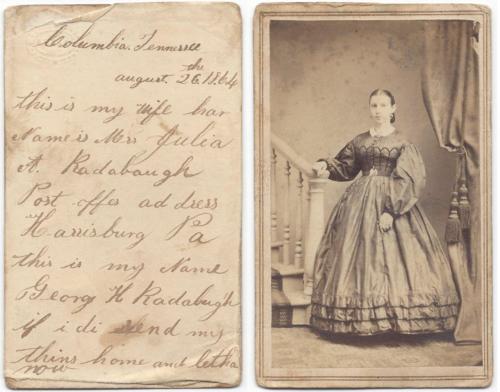 Columbia. Tennessee
august the 26 1864
this is my wife har
Name is Mrs Julia
A. Radabaugh
Post offes ad dress
Harrisburg Pa
this is my Name
Georg H Radabugh
if i di send my
thins home and let ha
now